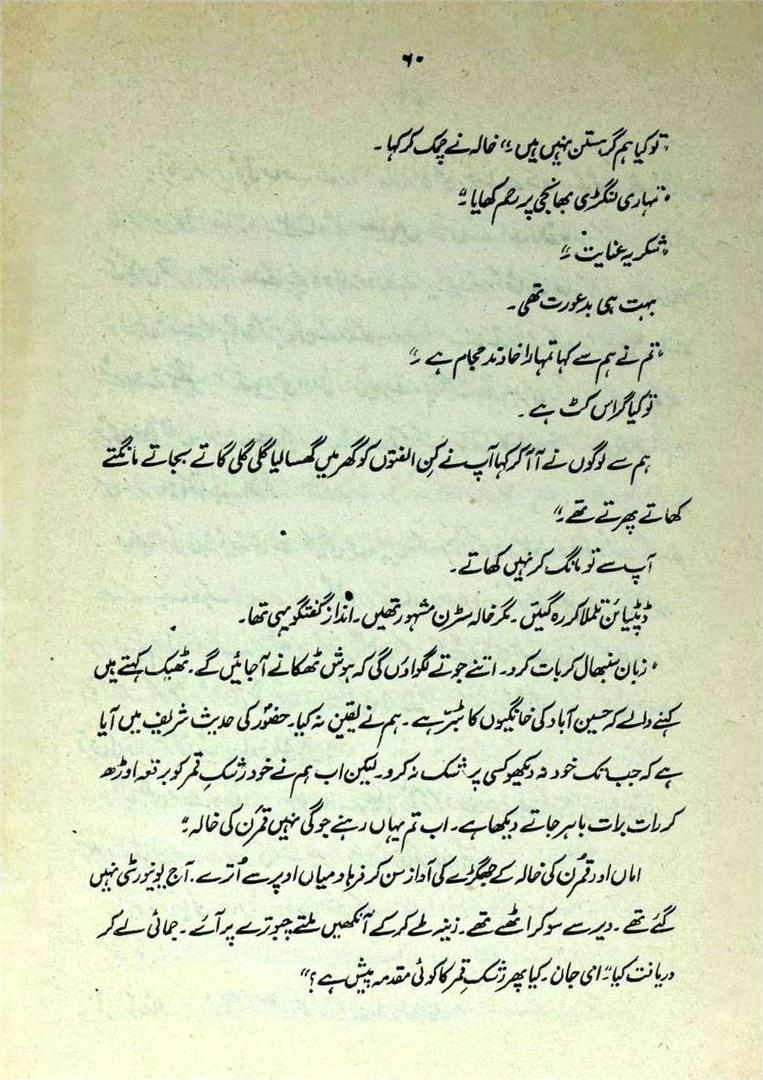 ۶۰
"تو کیا ہم گرہستن نہیں ہیں۔" خالہ نے چمک کر کہا۔
"تمہاری لنگڑی بھانجی پر رحم کھایا۔"
"شکریہ عنایت۔"
بہت ہی بد عورت تھی۔
"تم نے ہم سے کہا تمہارا خاوند حجام ہے۔"
تو کیا گراس کٹ ہے۔
ہم سے لوگوں نے آ آ کر کہا آپ نے کِن الفتوں کو گھر میں گھسا لیا گلی گلی گاتے بجاتے مانگتے
کھاتے پھرتے تھے۔"
آپ سے تو مانگ کر نہیں کھاتے۔
ڈپٹیائن تلملا کر رہ گئیں۔ مگر خالہ سڑن مشہور تھیں۔ اندازِ گفتگو یہی تھا۔
"زبان سنبھال کر بات کرو۔ اتنے جوتے لگواؤں گی کہ ہوش ٹھکانے آجائیں گے۔ ٹھیک کہتے ہیں
کہنے والے کہ حسین آباد کی خانگیوں کا ٹبّر ہے۔ ہم نے یقین نہ کیا۔ حضورؐ کی حدیث شریف میں آیا
ہے کہ جب تک خود نہ دیکھو کسی پر شک نہ کرو۔ لیکن اب ہم نے خود رَشکِ قمر کو برقعہ اوڑھ
کر رات برات باہر جاتے دیکھا ہے۔ اب تم یہاں رہنے جوگی نہیں قمرُن کی خالہ۔"
اماں اور قمرُن کی خالہ کے جھگڑے کی آواز سن کر فرہاد میاں اوپر سے اُترے۔ آج یونیورسٹی نہیں
گئے تھے۔ دیر سے سو کر اٹھے تھے۔ زینہ طے کر کے آنکھیں ملتے چبوترے پر آئے۔ جمائی لے کر
دریافت کیا "امی جان۔ کیا پھر رَشکِ قمر کا کوئی مقدمہ پیش ہے؟"